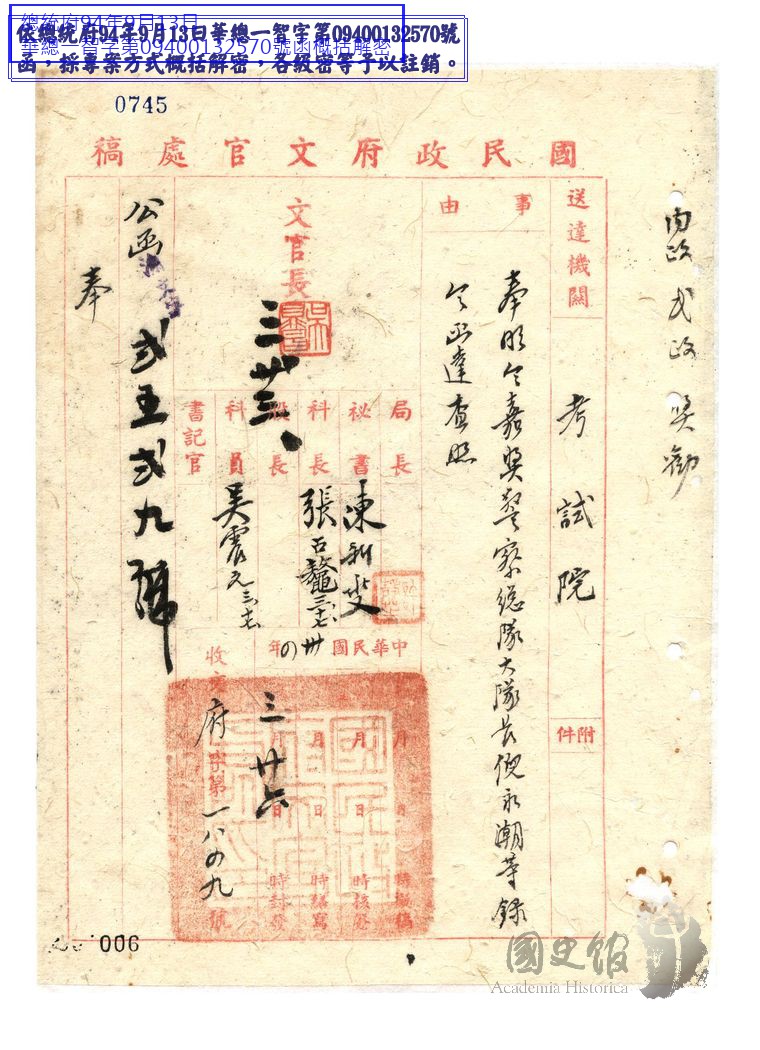 總統府94年9月13日
華總一智字第09400132570號函概括解密
依總統府94年9月13日華總一智字第09400132570號
函，採專案方式概括解密，各級密等予以註銷。
0745
國民政府文官處稿
內政 武政 獎勵
送達機關
考試院
附件
事由
奉明令嘉獎警察總隊大隊長倪永潮等錄
令函達查照
文官長
三 廿三
局長
祕書
陳
科長
張
股長
科員
吳震
書記官
中華民國卅四年
月 日 時擬稿
月 日 時核簽
月 日 時繕寫
三月廿六日 時封發
收文
府字第一八四九號
公函
弍五弍九號
奉
006
國史館
Academia Historica